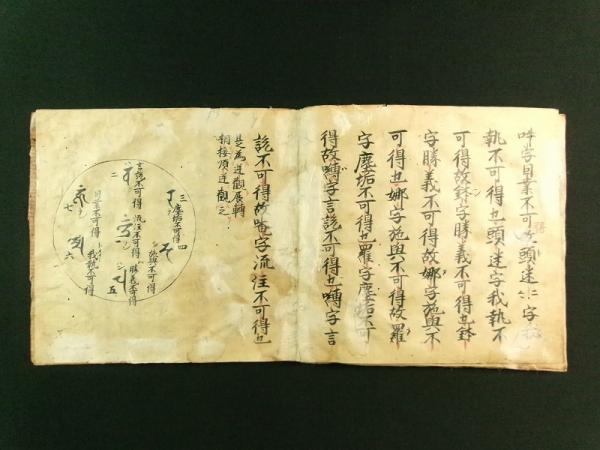 字因業不可頭迷二字我
執不可得也頭迷字我執不
可得故鉢字勝義不可得也鉢
字勝義不可得故娜字施與不
可得也娜字施與不可得故羅
字塵垢不可得也羅字塵垢不可
得故嚩字言說不可得也嚩字言
說不可得故菴字流注不可得也
是為逆觀展轉
相接順逆觀之
三塵垢不可得 四
施與不可得
勝義不可得 五
流注不可得
二 言說不可得
我執不可得 六
因業不可得
七